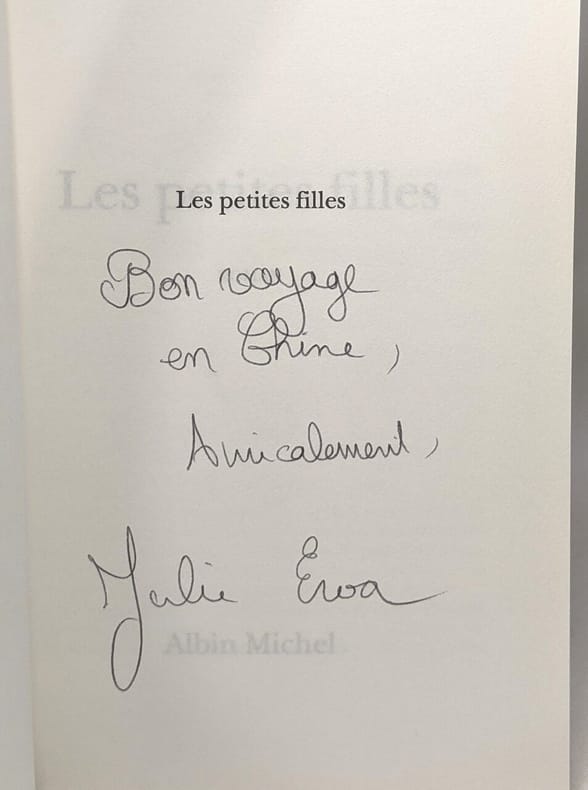 Les petites filles
Les petites filles
Bon voyage
en Chine,
Amicalement,
Julie Ewa
Albin Michel